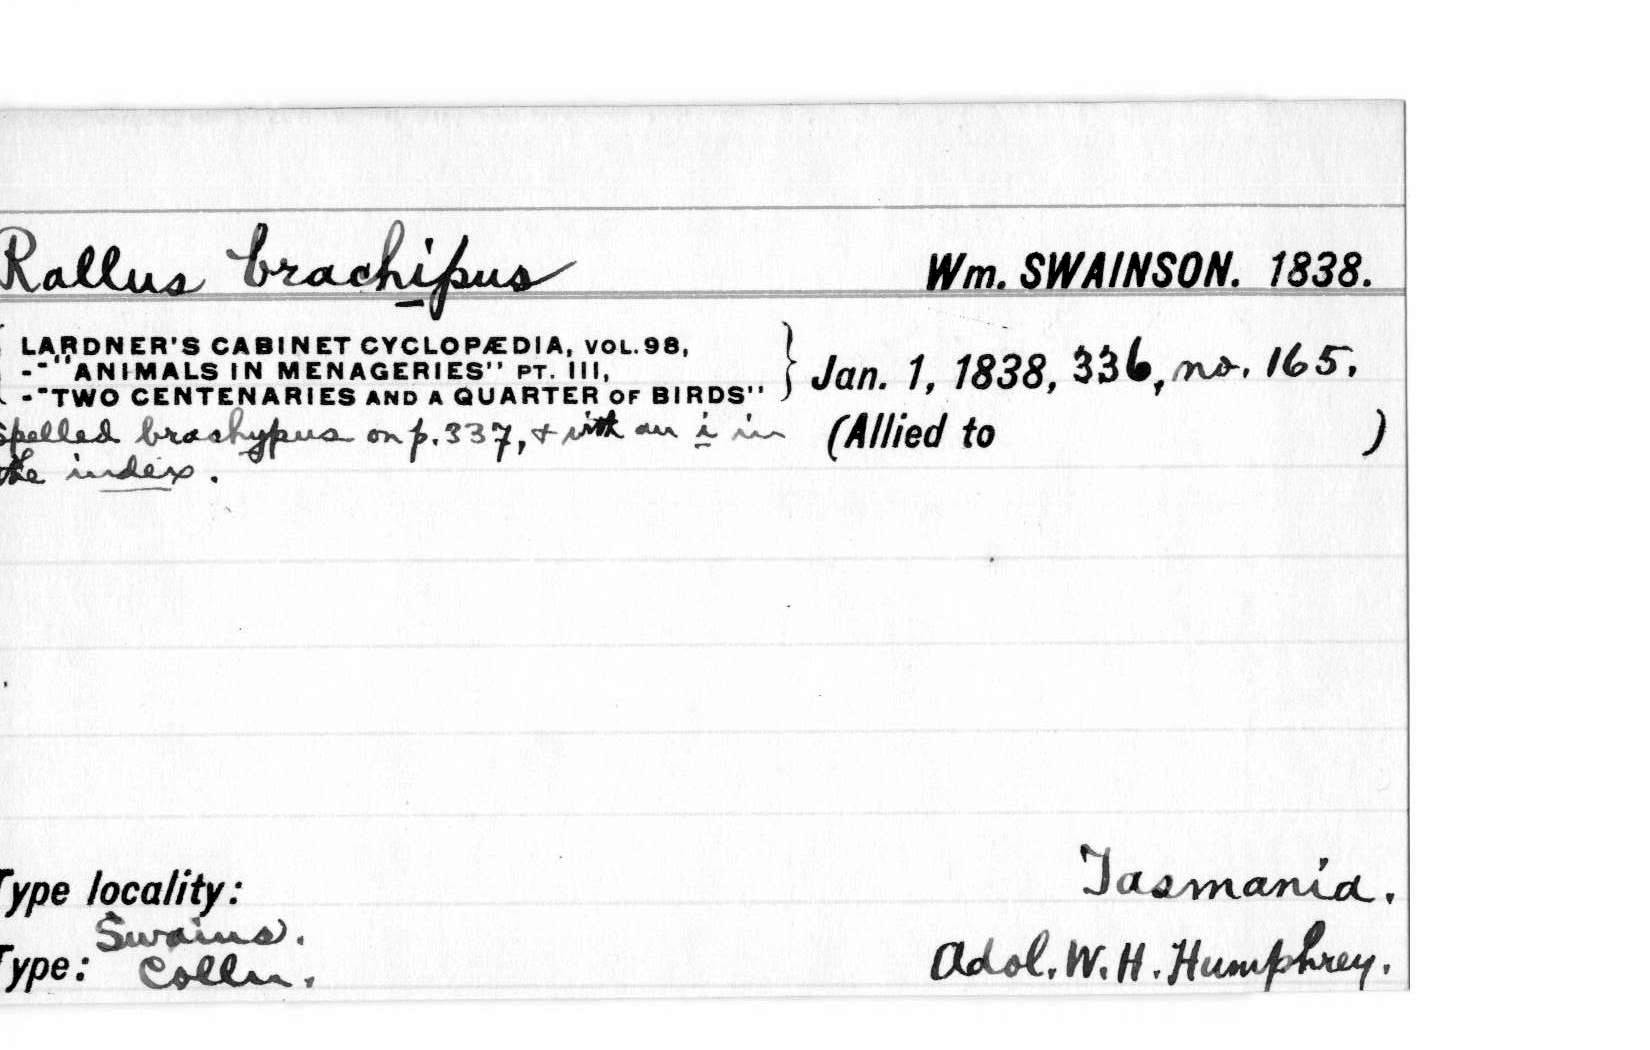 Rallus brachipus Wm. SWAINSON. 1838.
LARDNER'S CABINET CYCLOPÆDIA, VOL. 98,
-"ANIMALS IN MENAGERIES" PT. III,
-"TWO CENTENARIES AND A QUARTER OF BIRDS"
Jan. 1, 1838, 336, no. 165.
spelled brachypus on p. 337, & with an i in
the index.
(Allied to )
Type locality: Tasmania.
Swains.
Type: Colln. Adol. W. H. Humphrey.